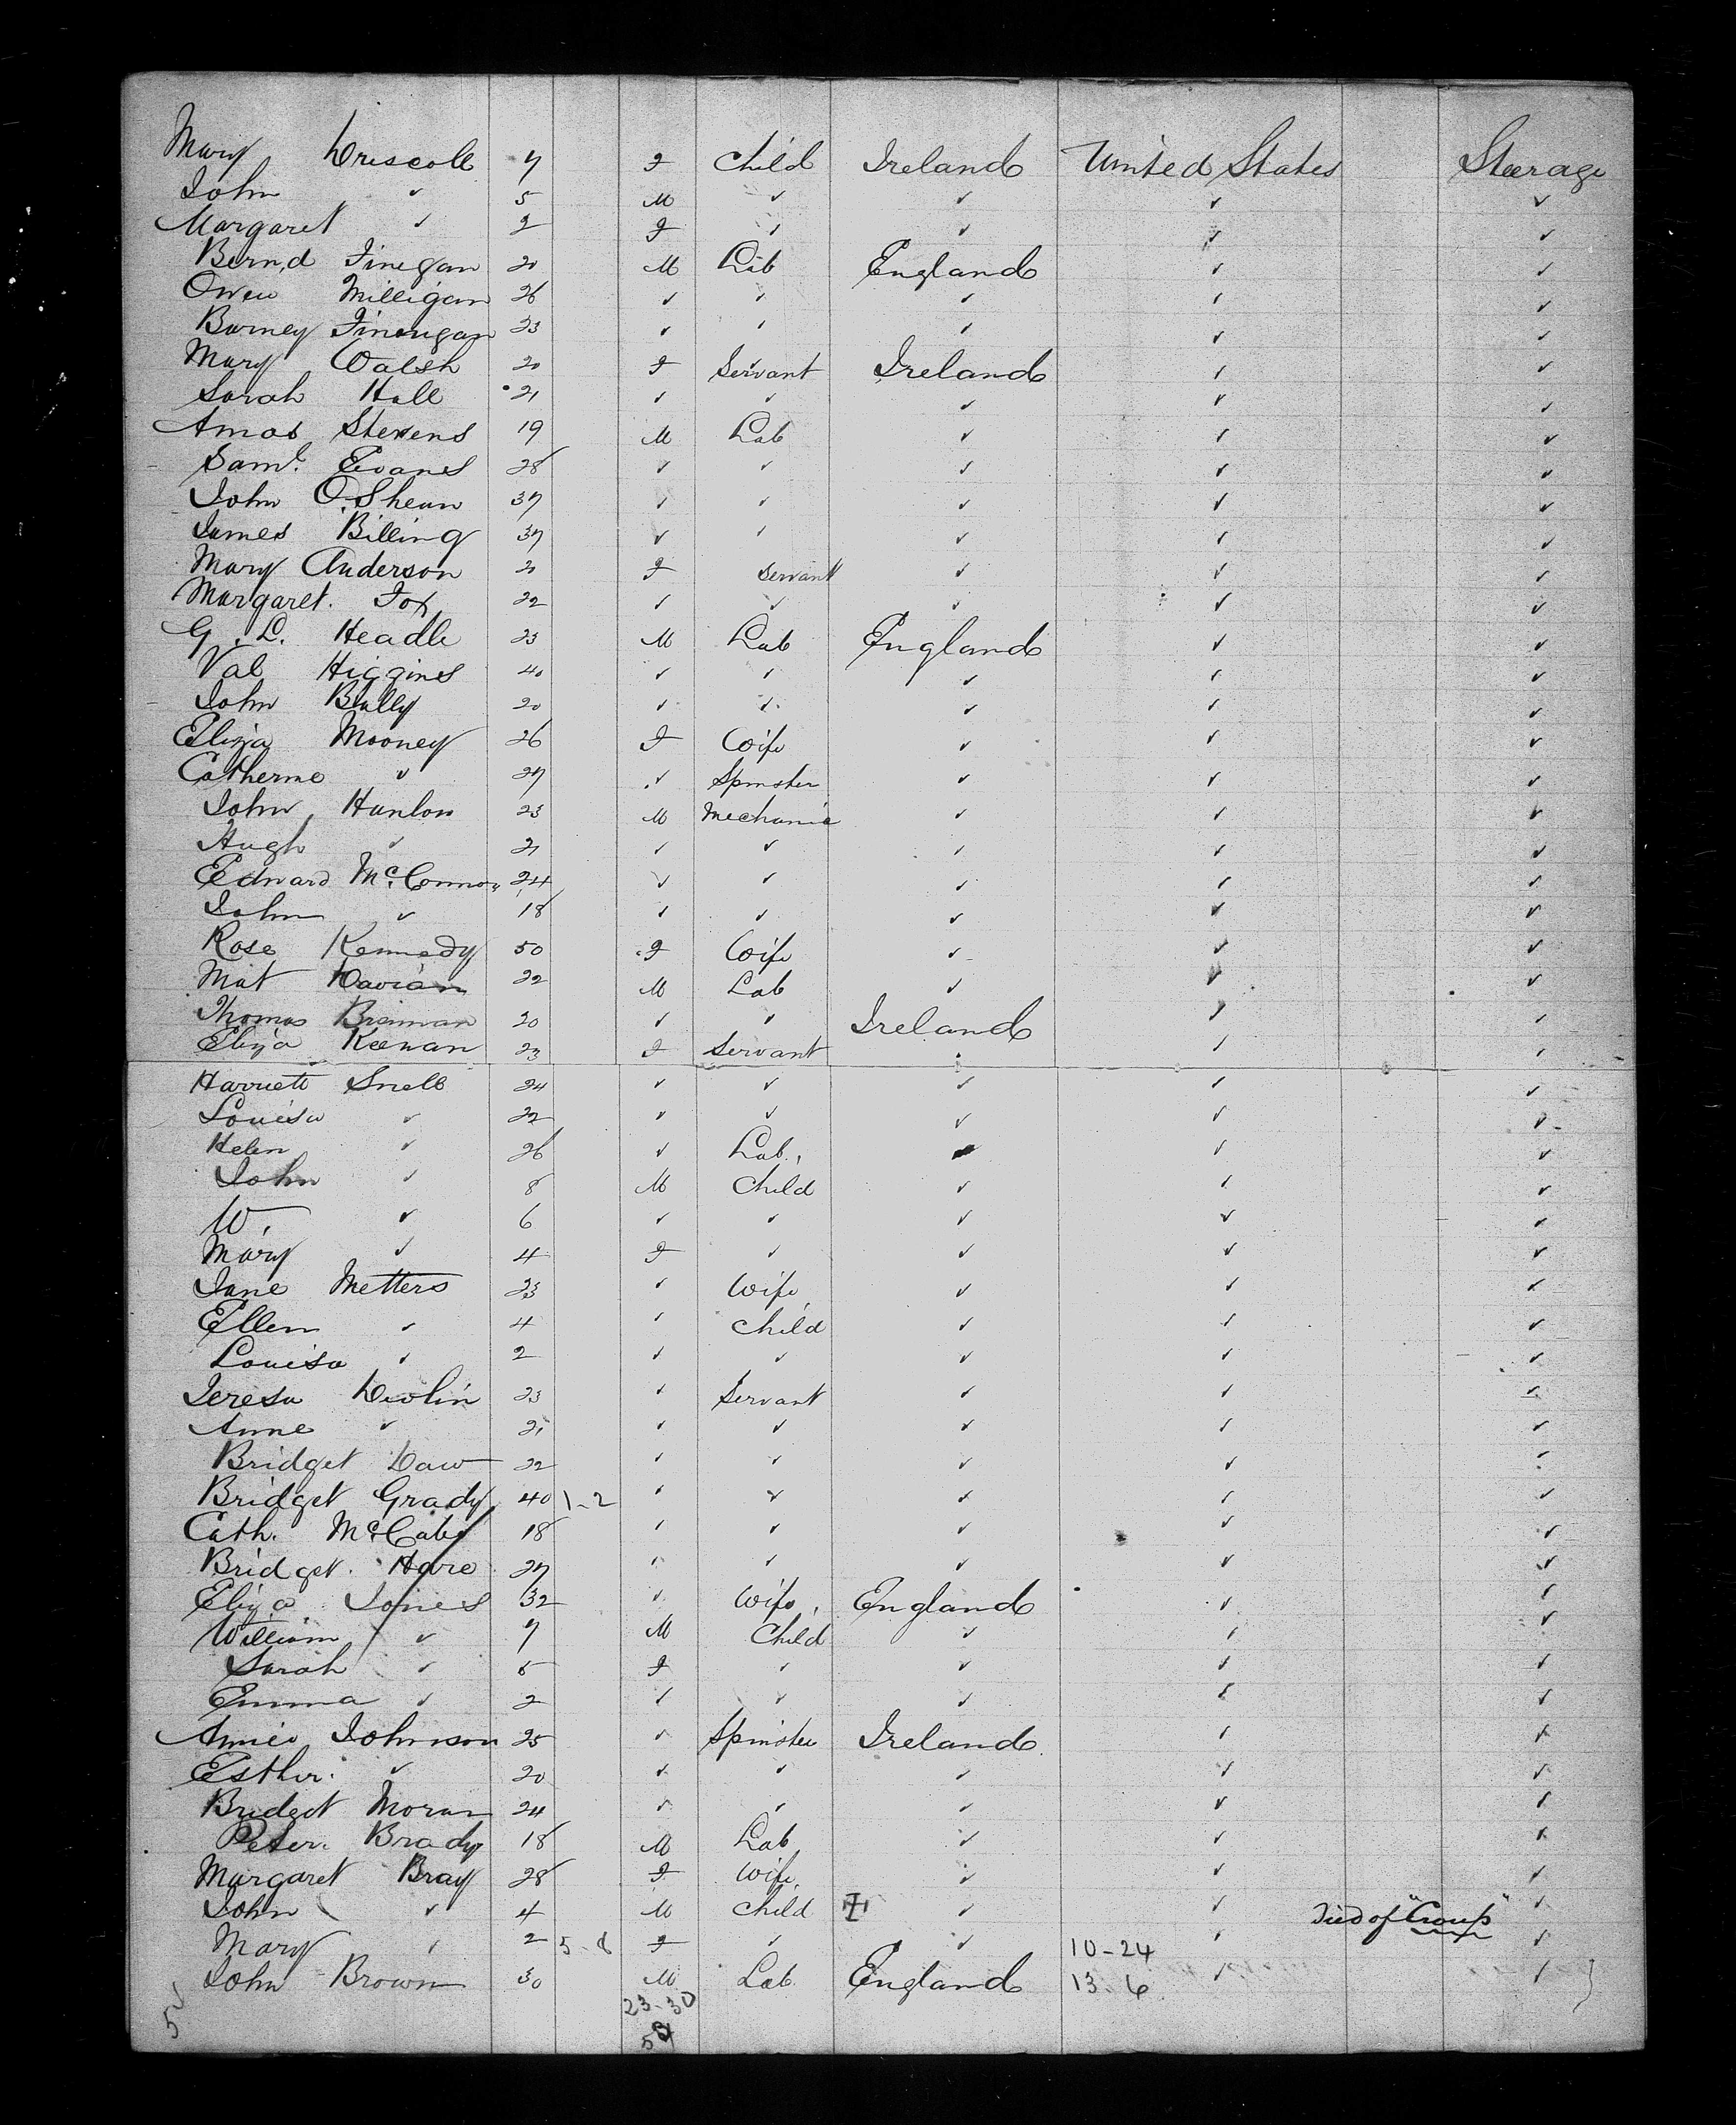 Mary Driscoll 7 F Child Ireland United States Steerage
John ✓ 5 M ✓ ✓ ✓ ✓
Margaret ✓ 2 F ✓ ✓ ✓ ✓
Bern,d Finegan 20 M Lab England ✓ ✓
Owen Milligan 26 ✓ ✓ ✓ ✓ ✓
Barney Finnugan 23 ✓ ✓ ✓ ✓ ✓
Mary Walsh 20 F Servant Ireland ✓ ✓
Sarah Hall 21 ✓ ✓ ✓ ✓ ✓
Amos Stevens 19 M Lab ✓ ✓ ✓
Saml. Evans 28 ✓ ✓ ✓ ✓ ✓
John O.Shean 37 ✓ ✓ ✓ ✓ ✓
James Billing 37 ✓ ✓ ✓ ✓ ✓
Mary Anderson F servant ✓ ✓ ✓
Margaret. Fox 22 ✓ ✓ ✓ ✓ ✓
G. L. Headle 23 M Lab England ✓ ✓
Val Higgins 40 ✓ ✓ ✓ ✓ ✓
John Bully 20 ✓ ✓ ✓ ✓ ✓
Eliza Mooney 26 F Wife ✓ ✓ ✓
Catherine ✓ 27 ✓ Spinster ✓ ✓ ✓
John Hanlon 23 M Mechanic ✓ ✓ ✓
Hugh ✓ 21 ✓ ✓ ✓ ✓ ✓
Edward McConnor 24 ✓ ✓ ✓ ✓ ✓
John ✓ 18 ✓ ✓ ✓ ✓ ✓
Rose Kennedy 50 F Wife ✓ ✓ ✓
Mat 22 M Lab ✓ ✓ ✓
Thomas Brennan 20 ✓ ✓ Ireland ✓ ✓
Eliza Keenan 23 F Servant ✓ ✓ ✓
Harriett Snell 24 ✓ ✓ ✓ ✓ ✓
Louisa ✓ 22 ✓ ✓ ✓ ✓ ✓
Helen ✓ 26 ✓ Lab. ✓ ✓ ✓
John ✓ 8 M Child ✓ ✓ ✓
W. ✓ 6 ✓ ✓ ✓ ✓ ✓
Mary ✓ 4 F ✓ ✓ ✓ ✓
Jane Metters 23 ✓ Wife ✓ ✓ ✓
Ellen ✓ 4 ✓ Child ✓ ✓ ✓
Louisa ✓ 2 ✓ ✓ ✓ ✓ ✓
Teresa Devlin 23 ✓ Servant ✓ ✓ ✓
Anne ✓ 21 ✓ ✓ ✓ ✓ ✓
Bridget Daw 22 ✓ ✓ ✓ ✓ ✓
Bridget Grady 40 1-2 ✓ ✓ ✓ ✓ ✓
Cath. McCabe 18 ✓ ✓ ✓ ✓ ✓
Bridget. Hare 27 ✓ ✓ ✓ ✓ ✓
Eliza Jones 32 ✓ Wife England ✓ ✓
William ✓ 7 M Child ✓ ✓ ✓
Sarah ✓ 5 F ✓ ✓ ✓ ✓
Emma ✓ 2 ✓ ✓ ✓ ✓ ✓
Annie Johnson 25 ✓ Spinster Ireland ✓ ✓
Esther. ✓ 20 ✓ ✓ ✓ ✓ ✓
Bridget Moran 24 ✓ ✓ ✓ ✓ ✓
Peter. Brady 18 M Lab ✓ ✓ ✓
Margaret Bray 28 F Wife ✓ ✓ ✓
John ✓ 4 M Child ✓ ✓ Died of "Croup" ✓
Mary ✓ 2 5-8 F ✓ ✓ 10-24 ✓ ✓
John Brown 30 M Lab England 13-6 ✓ ✓
23-30